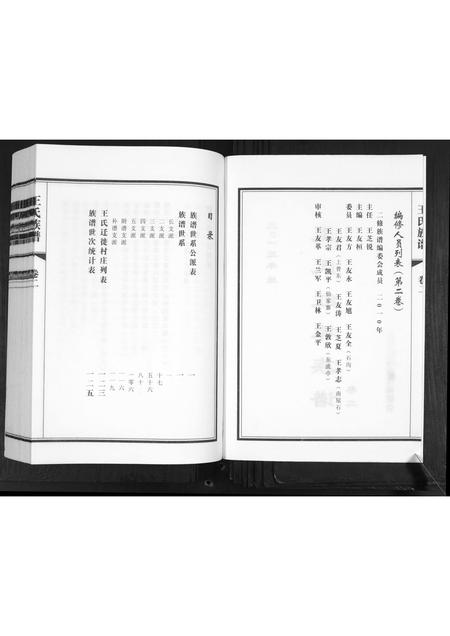 王氏族谱
编修人员列表（第二卷）
二修族谱编委会成员 二〇一〇年
主任 王芝锐
主编 王友桓
委员 王友永 王友旭 王友全（石沟）
王友君（上曾东） 王友涛 王芝夏 王孝志（南屋石）
王孝宗 王凯平（仙家寨） 王敦欣（东流亭）
审核 王友革 王兰军 王卫林 王金平
目录
族谱世系公派表 一
族谱世系 一
长支派 一
二支派 十七
三支派 五十六
四支派 八十
五支派 一〇六
附谱支派 一一六
补谱支派 一一九
王氏迁徙村庄列表 一二三
族谱世次统计表 一二五
王氏族谱 卷二